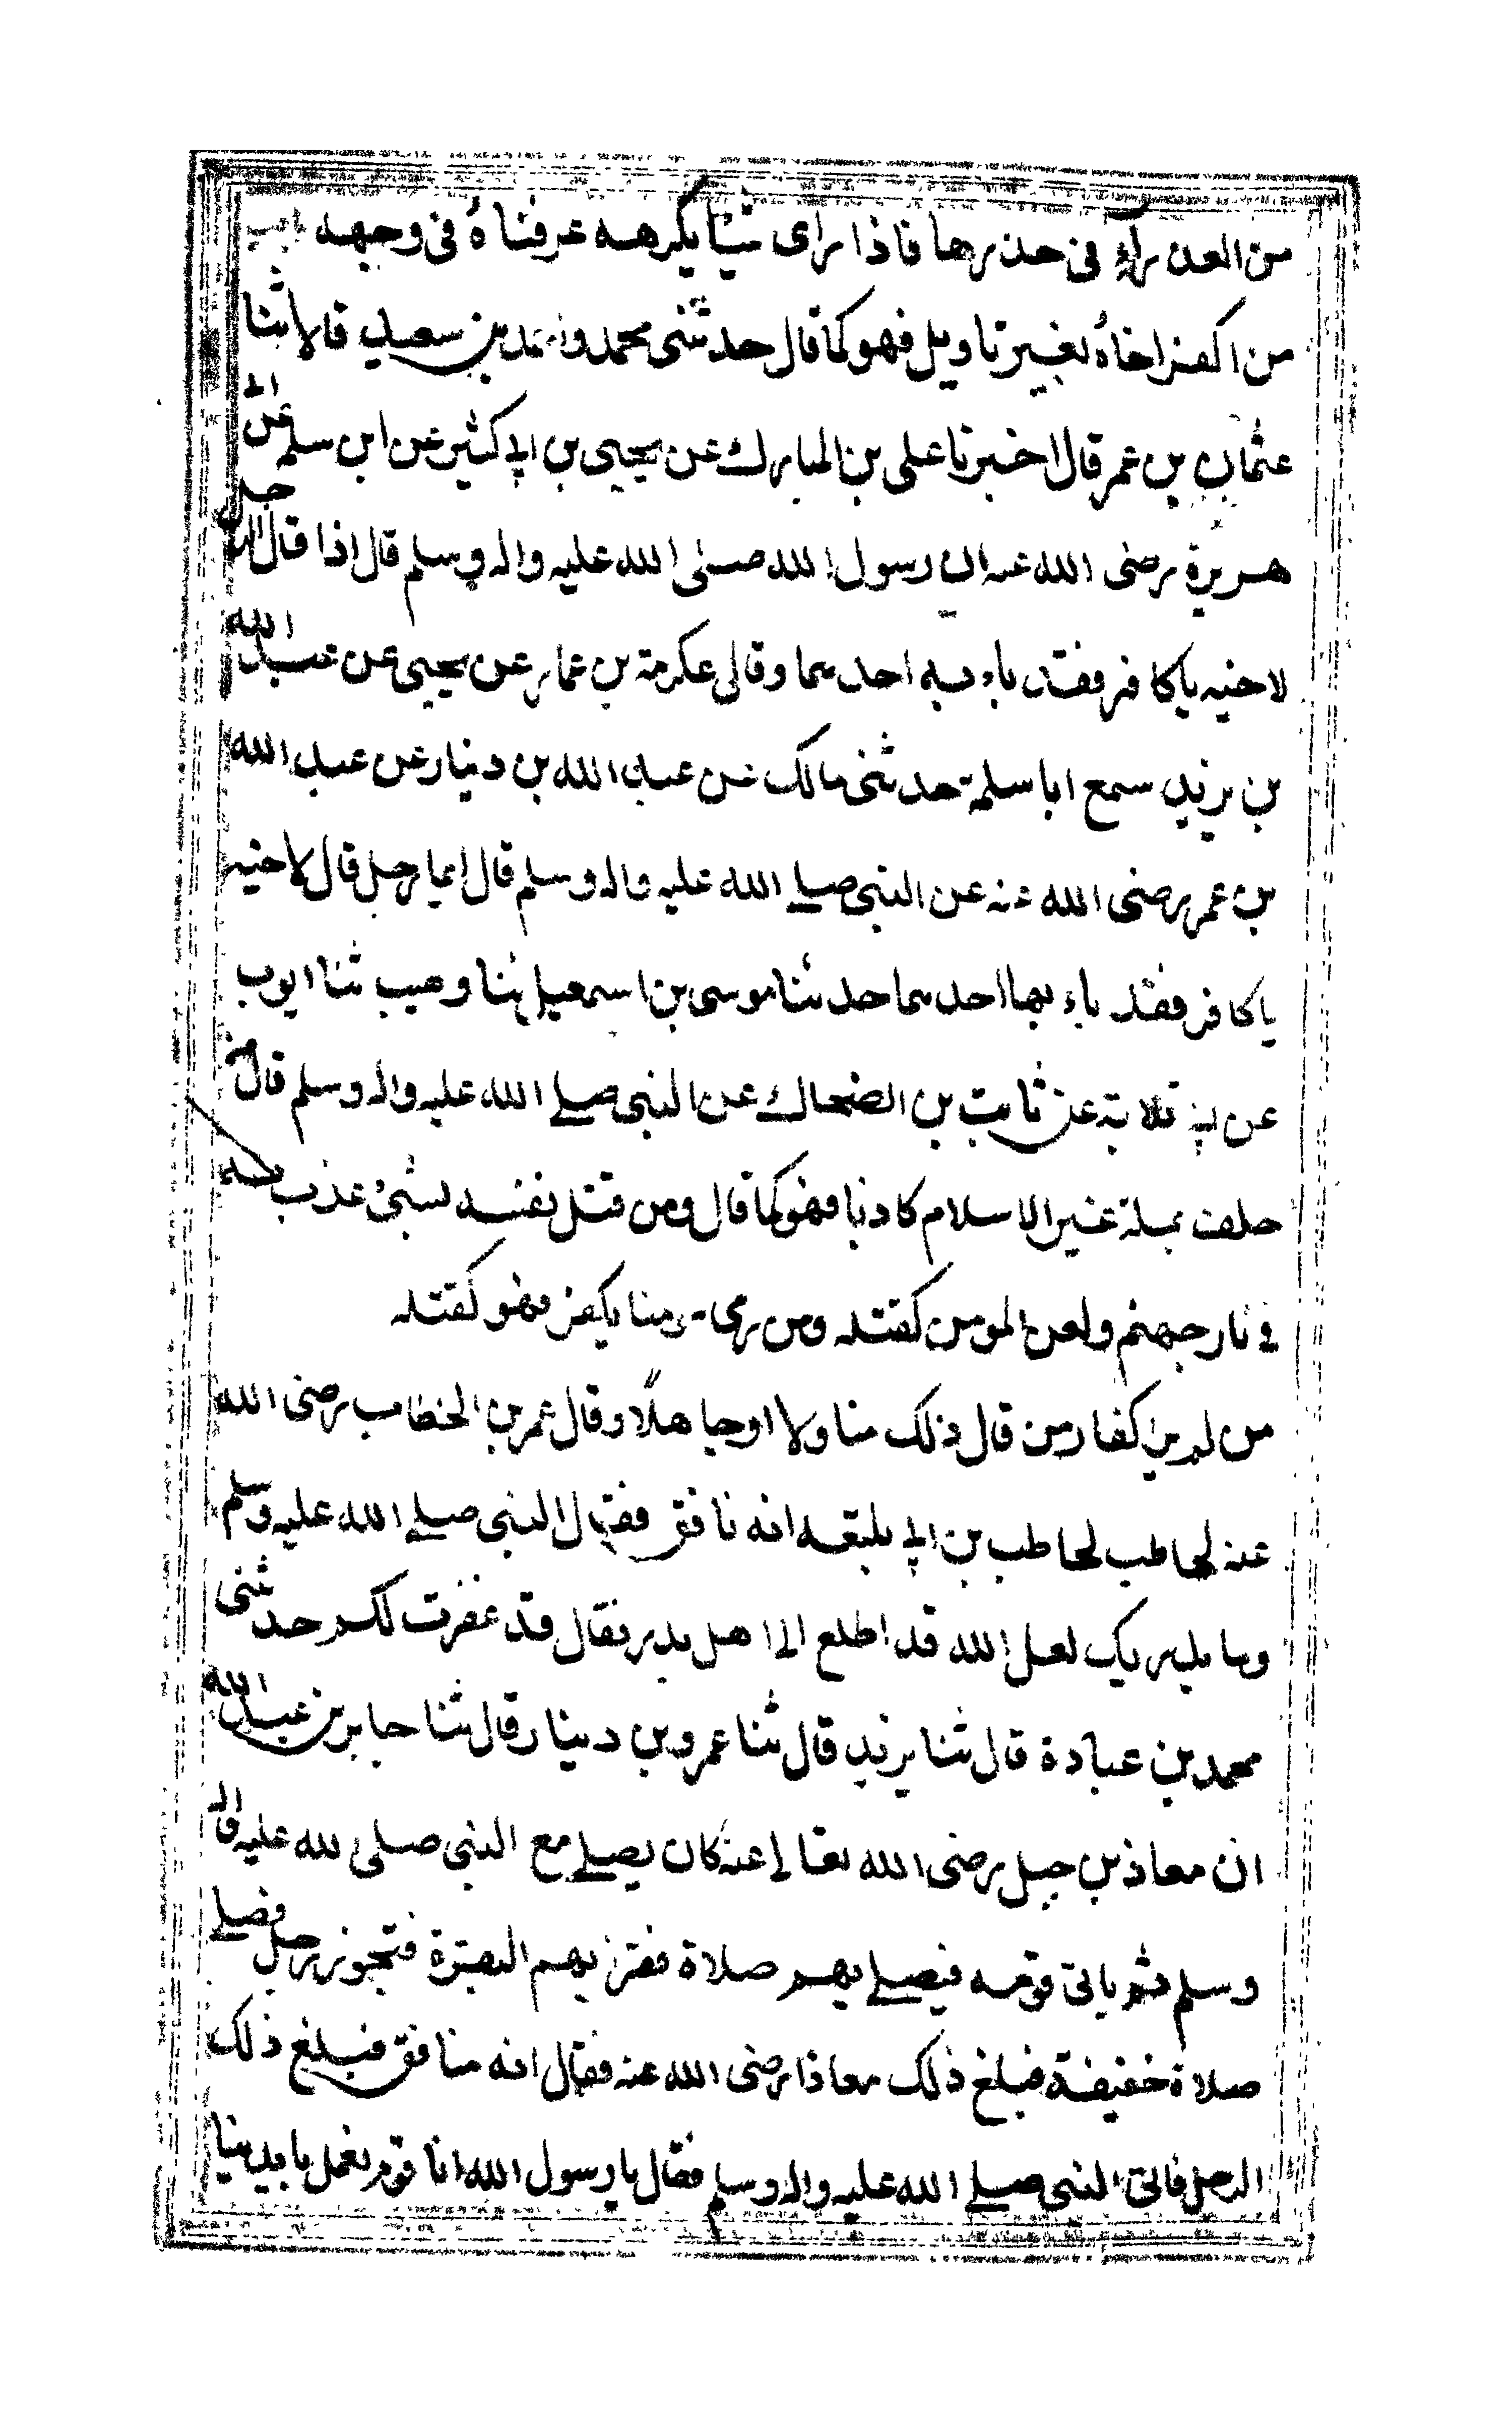 من العذراء في خدرها فاذا رأى شيئا يكرهه عرفناه في وجهه باب
من اكفر اخاه بغير تاويل فهو كما قال حدثنى محمد واحمد بن سعيد قالا ثنا
عثمان بن عمر قال اخبرنا على بن المبارك عن يحيى بن ابي كثير عن ابى سلمه عن ابى
هريرة رضى الله عنه ان رسول الله صلى الله عليه واله وسلم قال اذا قال الرجل
لاخيه ياكافر فقد باء به احدهما وقال عكرمة بن عمار عن يحيى عن عبد الله
بن يزيد سمع ابا سلمة حدثنى مالك عن عبد الله بن دينار عن عبد الله
بن عمر رضى الله عنه عن النبى صلے الله عليه واله وسلم قال ايما رجل قال لاخيه
ياكافر فقد باء بها احدهما حدثنا موسى بن اسمعيل ثنا وهيب ثنا ايوب
عن ابي قلابة عن ثابت بن الضحاك عن النبى صلے الله عليه واله وسلم قال من
حلف بملة غير الاسلام كاذبا فهو كما قال ومن قتل نفسه بشئ عذب به
في نار جهنم ولعن المومن كقتله ومن رمى مومنا بكفر فهو كقتله
من لم ير اكفار من قال ذلك متاولا او جاهلًا وقال عمر بن الخطاب رضى الله
عنه لحاطب لحاطب بن ابي بلتعه انه نافق فقال النبى صلے الله عليه وسلم
وما يدريك لعل الله قد اطلع الى اهل بدر فقال قد غفرت لكم حدثنى
محمد بن عبادة قال ثنا يزيد قال ثنا عمرو بن دينار قال ثنا جابر بن عبد الله
ان معاذ بن جبل رضى الله تعالے عنه كان يصلے مع النبى صلى الله عليه واله
وسلم ثم ياتى قومه فيصلے بهم صلاة فقرا بهم البقرة فتجوز رجل فصلے
صلاة خفيفة فبلغ ذلك معاذا رضى الله عنه فقال انه منافق فبلغ ذلك
الرجل فاتى النبى صلے الله عليه واله وسلم فقال يا رسول الله انا قوم نعمل بايدينا